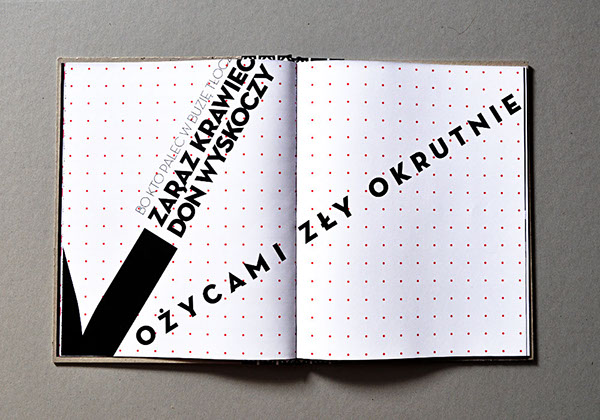 BO KTO PALEC W BUZIĘ TŁOC
ZARAZ KRAWIEC
DON WYSKOCZY
OŻYCAMI ZŁY OKRUTNIE